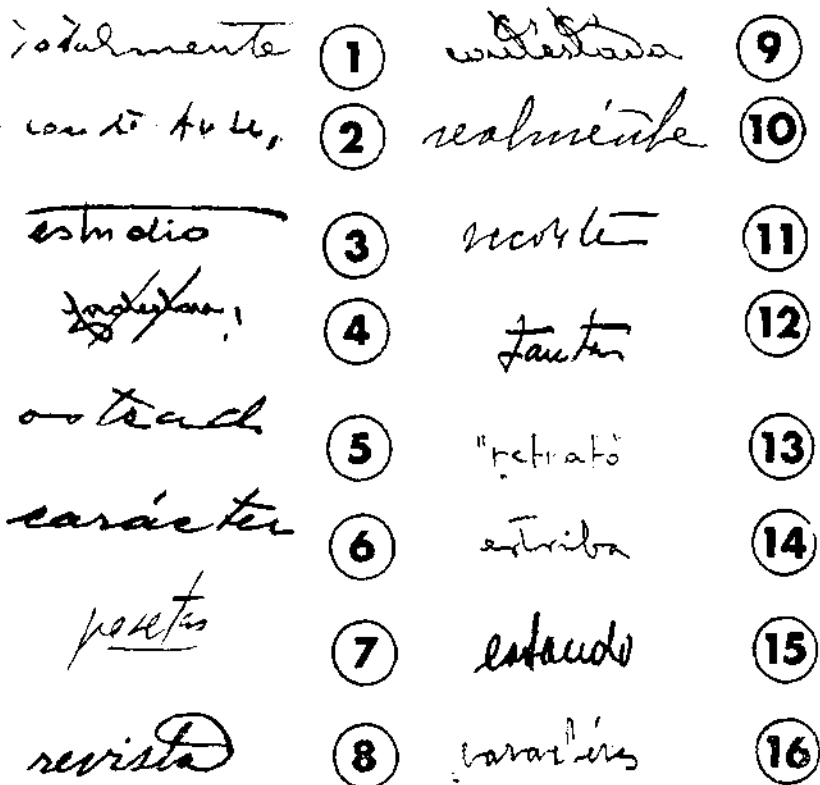 totalmente 1
2
estudio 3
4
ostrad 5
carácter 6
pesetas 7
revista 8
contestada 9
realmente 10
11
tanter 12
"retrató 13
estriba 14
estando 15
caracteres 16